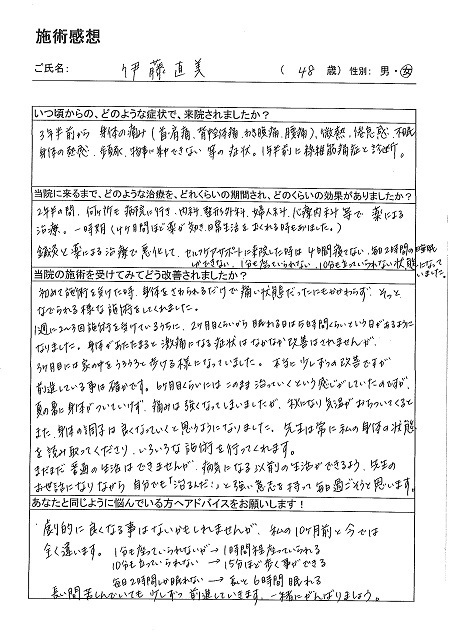 施術感想
ご氏名: 伊藤直美 ( 48 歳) 性別: 男・女
いつ頃からの、どのような症状で、来院されましたか?
3年半前から 身体の痛み(首・肩痛、背中全体痛、わき腹痛、腰痛)、微熱、倦怠感、不眠
身体の熱感、物事に集中できない 等の症状。1年半前に線維筋痛症と診断。
当院に来るまで、どのような治療を、どれくらいの期間され、どのくらいの効果がありましたか?
2年半の間、何ヶ所も病院に行き、内科、整形外科、婦人科、心療内科等で 薬による
治療。一時期(4ヶ月間ほど薬が効き日常生活をおくれる時もありました。)
鍼灸と薬による治療で悪化して、セルフケアサポートに来院した時は 4日間寝てない、毎日2時間の睡眠
ができない、1分も座っていられない、10分も立っていられない状態になって
いました。
当院の施術を受けてみてどう改善されましたか?
初めて施術を受けた時、身体をさわられるだけで痛い状態だったにもかかわらず、そっと、
なでられる様な施術をしてくれました。
1週に2~3回施術を受けているうちに、2ヶ月くらいから 眠れる日は5時間くらいという日があるように
なりました。身体があたたまると 激痛になる症状は なかなか改善はされませんが、
3ヶ月目には家の中をうろうろと歩ける様になっていました。本当に少しずつの改善ですが
前進している事は確かです。6ヶ月目くらいには このまま治っていくという感じがしていたのですが、
夏の暑さに身体がついていけず、痛みは強くなってしまいましたが、秋になり気温がおちついてくると
また、身体の調子は良くなっていくと思うようになりました。先生は常に私の身体の状態
を読み取ってくださり、いろいろな施術を行ってくれます。
まだまだ 普通の生活は できませんが、病気になる以前の生活ができるよう、先生の
お世話になりながら 自分でも「治るんだ!」と強い意志を持って毎日過ごそうと思います。
あなたと同じように悩んでいる方へアドバイスをお願いします!
劇的に良くなる事はないかもしれませんが、私の10ヶ月前と今では
全く違います。 1分も座っていられないが → 1時間程座っていられる
10分も立っていられない → 15分ほど歩く事ができる
毎日2時間しか眠れない → 私と6時間 眠れる
長い間苦しんでいても 少しずつ 前進していきます。一緒にがんばりましょう。